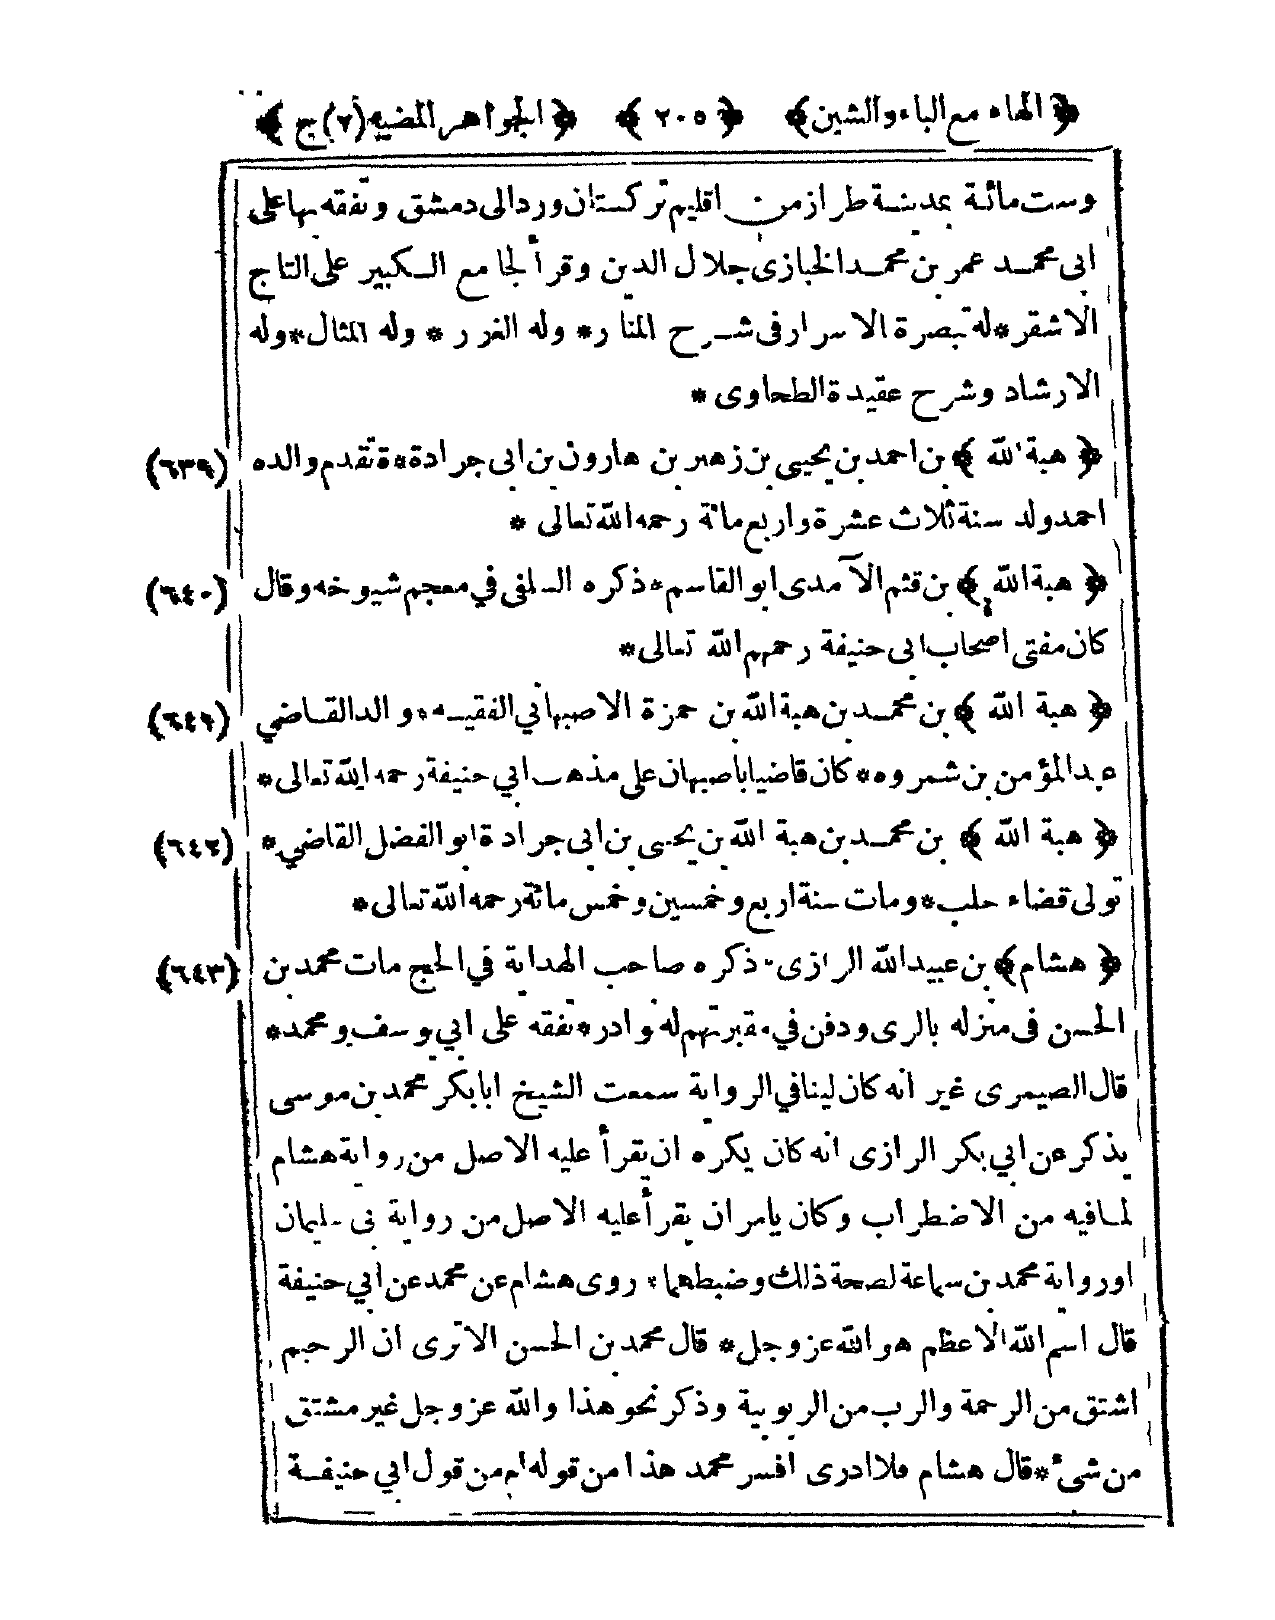 ﴿ الهاء مع الباء والشين ﴾ ﴿ ٢٠٥ ﴾ ﴿ الجواهر المضيه (٢) ج ﴾
وست مائة بمدينة طراز من اقليم تركستان ورد الى دمشق وتفقه بها على
ابى محمد عمر بن محمد الخبازى جلال الدين وقرأ لجامع الكبير على التاج
الاشقر * له تبصرة الاسرار فى شرح المنار * وله الغرر * وله المثال * وله
الارشاد وشرح عقيدة الطحاوى *
(٦٣٩) ﴿ هبة الله ﴾ بن احمد بن يحيى بن زهير بن هارون بن ابى جرادة * تقدم والده
احمد ولد سنة ثلاث عشرة واربع مائة رحمه الله تعالى *
(٦٤٠) ﴿ هبة الله ﴾ بن قثم الآمدى ابو القاسم * ذكره السلفى في معجم شيوخه وقال
كان مفتى اصحاب ابى حنيفة رحمهم الله تعالى *
﴿ هبة الله ﴾ بن محمد بن هبة الله بن حمزة الاصبهاني الفقيه * والد القاضي
عبد المؤمن بن شمروه * كان قاضيا باصبهان على مذهب ابي حنيفة رحمه الله تعالى *
(٦٤٢) ﴿ هبة الله ﴾ بن محمد بن هبة الله بن يحيى بن ابى جرادة ابو الفضل القاضي *
تولى قضاء حلب * ومات سنة اربع وخمسين وخمس مائة رحمه الله تعالى *
(٦٤٣) ﴿ هشام ﴾ بن عبيد الله الرازى * ذكره صاحب الهداية في الحج مات محمد بن
الحسن فى منزله بالرى ودفن في مقبرتهم له نوادر * تفقه على ابي يوسف ومحمد *
قال الصيمرى غير انه كان لينا في الرواية سمعت الشيخ ابا بكر محمد بن موسى
يذكر عن ابي بكر الرازى انه كان يكره ان يقرأ عليه الاصل من رواية هشام
لما فيه من الاضطراب وكان يامر ان يقرأ عليه الاصل من رواية بى سليمان
او رواية محمد بن سماعة لصحة ذلك وضبطهما * روى هشام عن محمد عن ابي حنيفة
قال اسم الله الاعظم هو الله عز وجل * قال محمد بن الحسن الا ترى ان الرحيم
اشتق من الرحمة والرب من الربوبية وذكر نحو هذا والله عز وجل غير مشتق
من شىء * قال هشام فلا ادرى افسر محمد هذا من قوله ام من قول ابي حنيفة